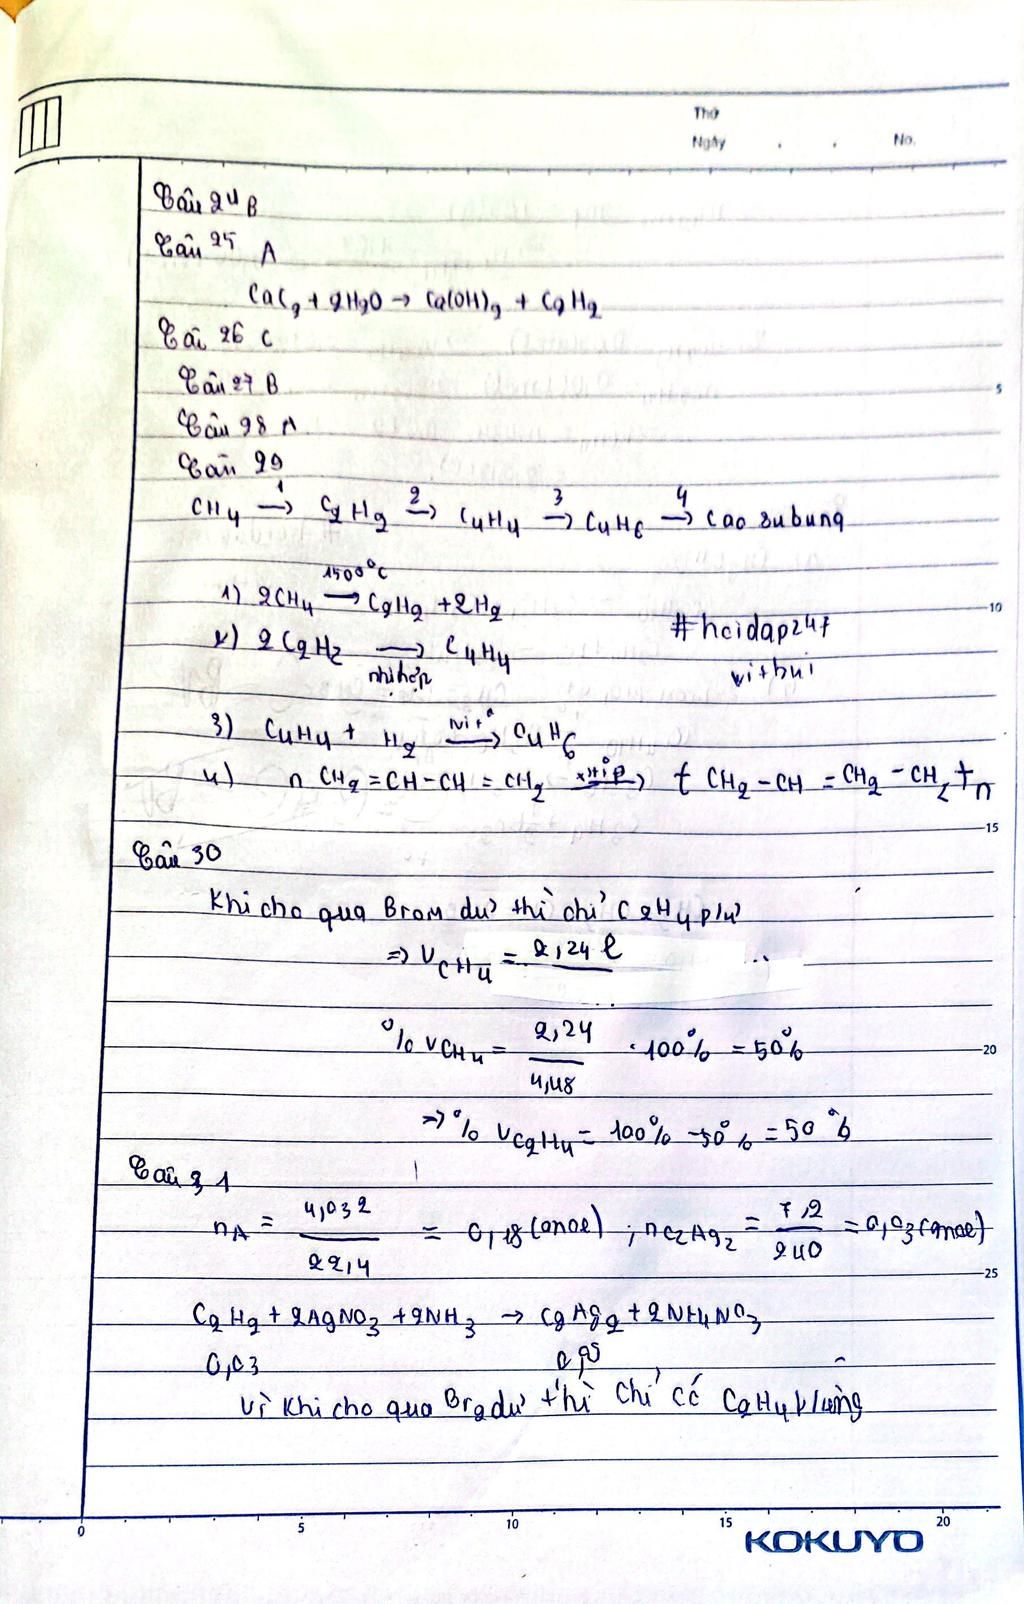 Thứ
Ngày . . No.
Câu 24 B
Câu 25 A
CaC2 + 2H2O → Ca(OH)2 + C2H2
Câu 26 C
Câu 27 B
Câu 28 A
Câu 29
CH4 →1 C2H2 →2 C4H4 →3 C4H6 →4 Cao su buna
1) 2CH4 →1500°C C2H2 + 2H2
2) 2C2H2 → nhị hợp C4H4
#hoidap247
vitbui
3) C4H4 + H2 →Ni t° C4H6
4) n CH2=CH-CH=CH2 → ( CH2-CH=CH2-CH2 )n
Câu 30
Khi cho qua Brom dư thì chỉ C2H4 p/ư
=> VCH4 = 2,24 l
%VCH4 = 2,24/4,48 . 100% = 50%
=> %VC2H4 = 100% - 50% = 50%
Câu 31
nA = 4,032/22,4 = 0,18 (mol) ; nC2Ag2 = 7,2/240 = 0,03 (mol)
C2H2 + 2AgNO3 + 2NH3 → C2Ag2 + 2NH4NO3
0,03
Vì khi cho qua Br2 dư thì chỉ có C2H4 p/ứng
5
10
15
20
25
0 5 10 15 20
KOKUYO